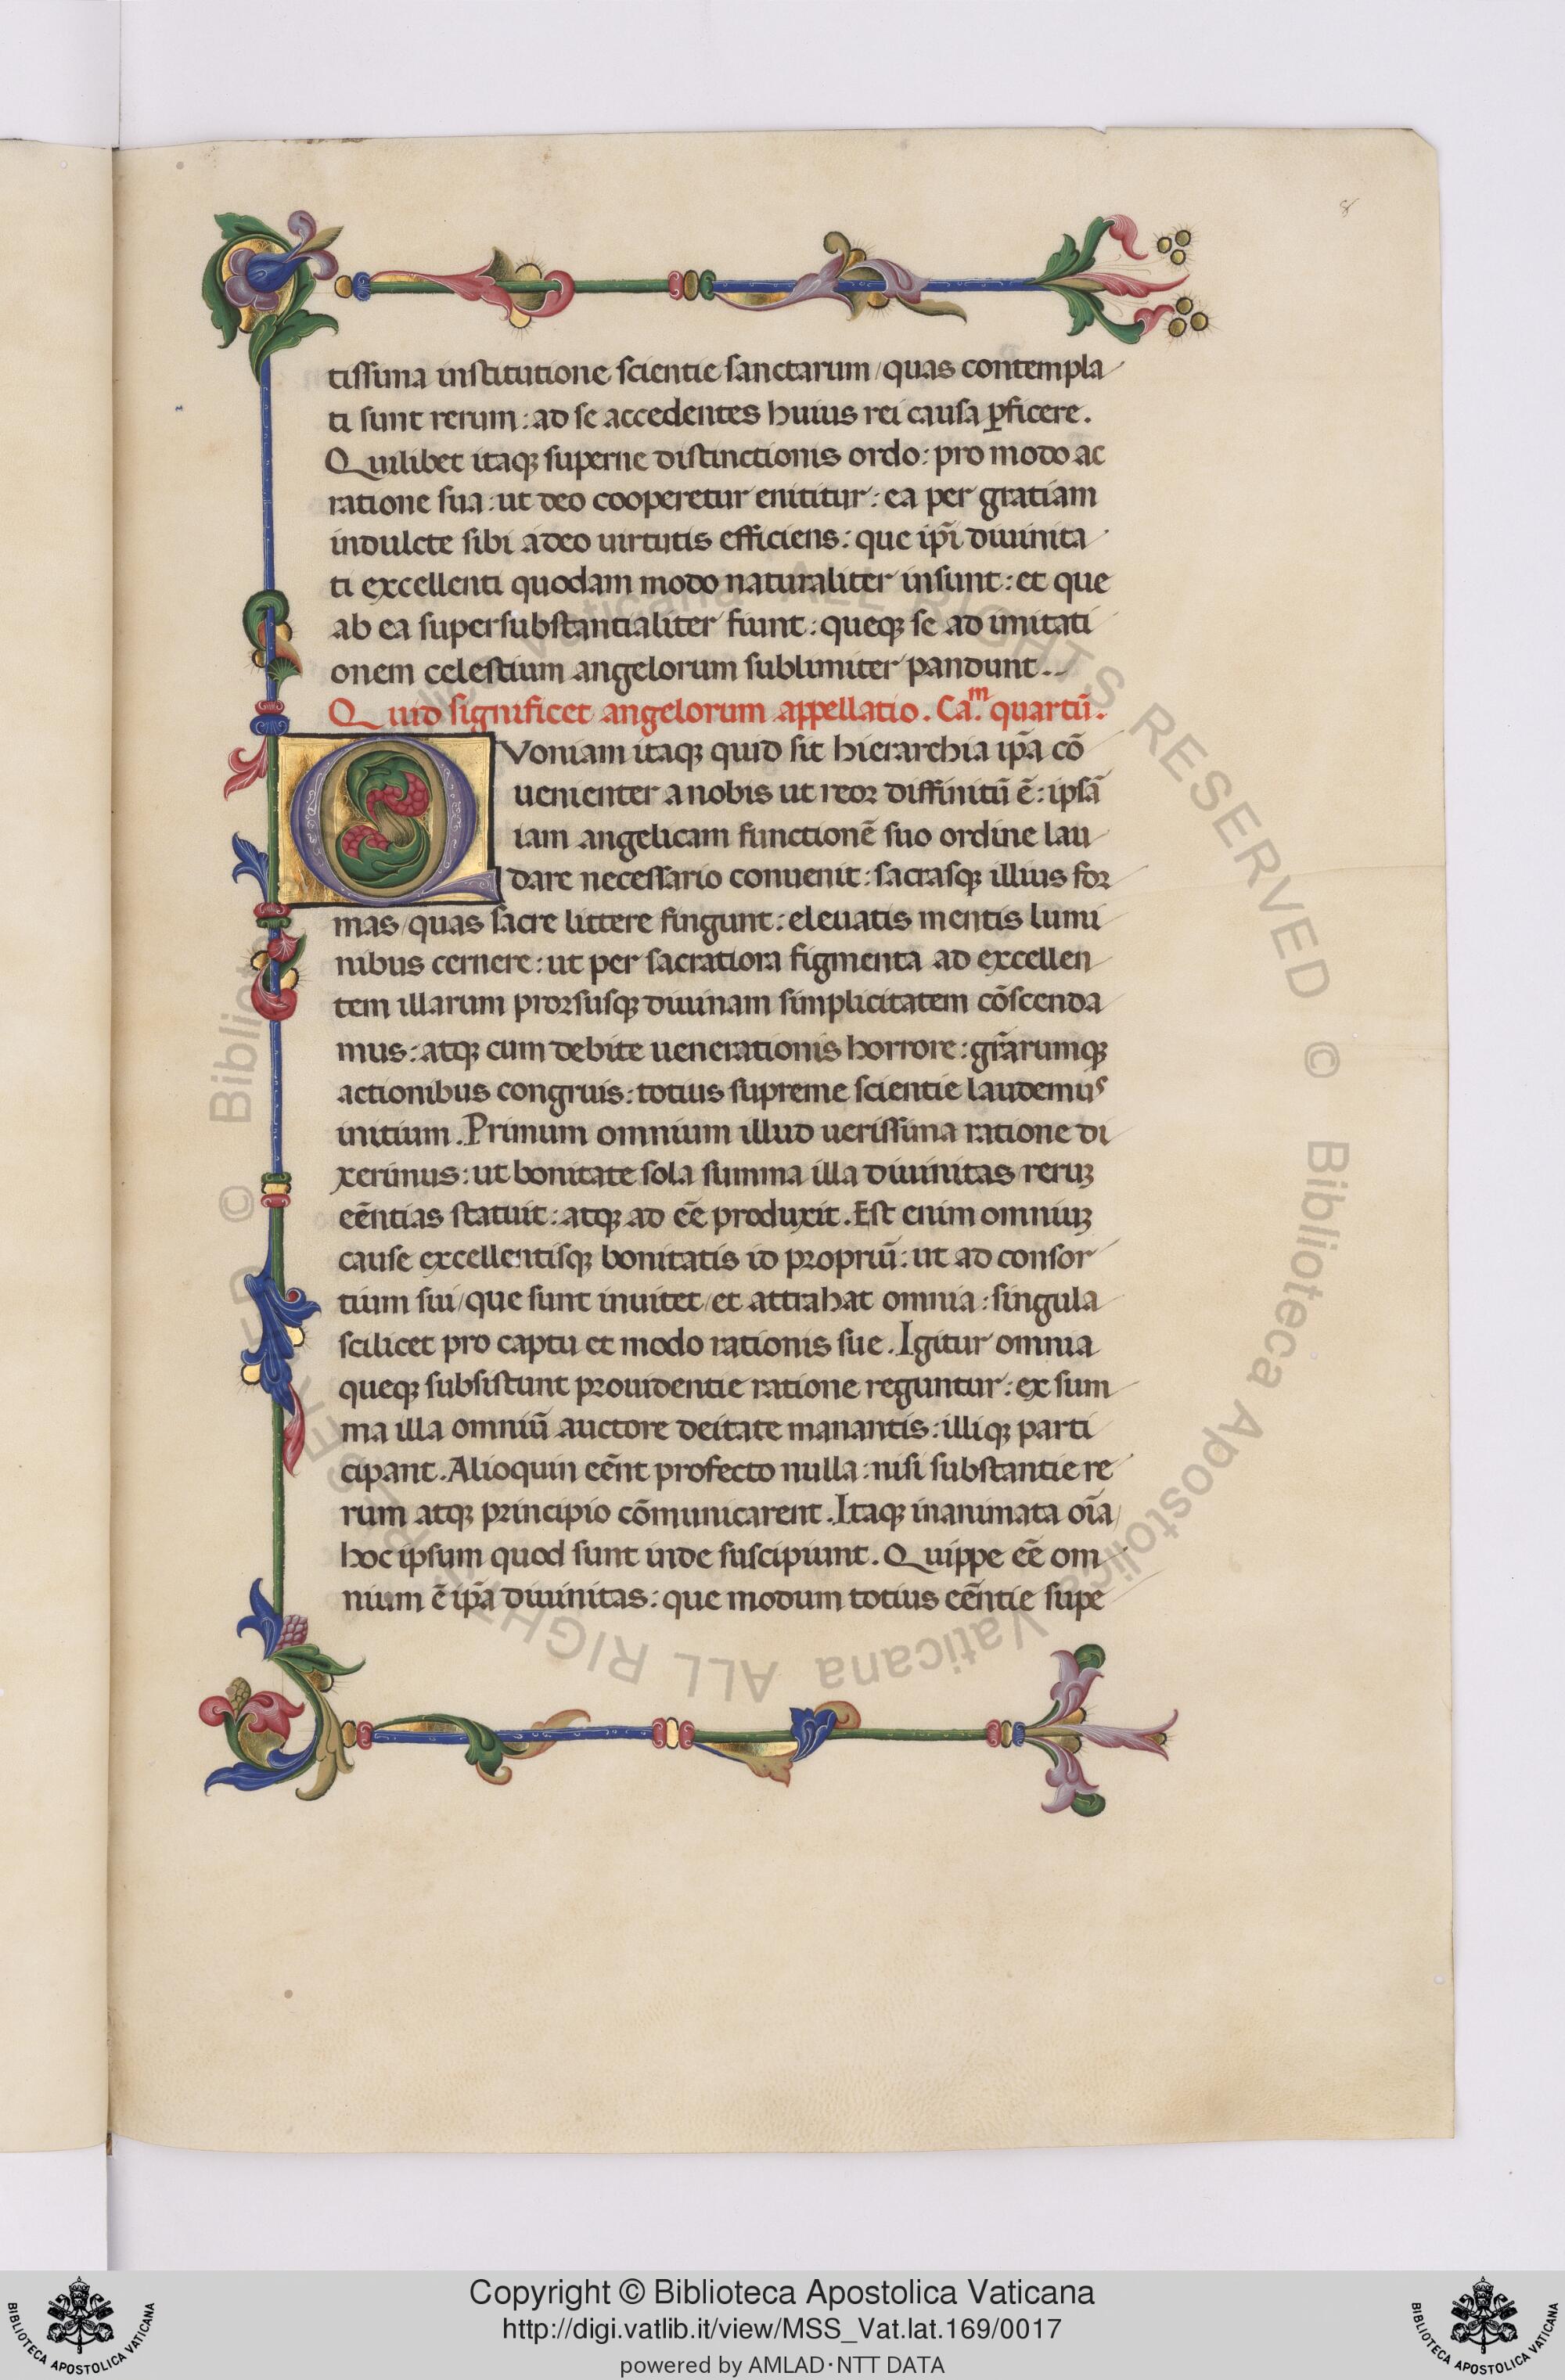 8
tissima institutione scientie sanctarum/quas contempla
ti sunt rerum: ad se accedentes huius rei causa ꝑficere.
Quilibet itaqꝫ superne distinctionis ordo: pro modo ac
ratione sua: ut deo cooperetur enititur: ea per gratiam
indulcte sibi adeo uirtutis efficiens: que ip̄i diuinita
ti excellenti quodam modo naturaliter insunt: et que
ab ea supersubstantialiter fiunt: queqꝫ se ad imitati
onem celestium angelorum sublimiter pandunt..
Quid significet angelorum appellatio. Ca.ᵐ quartū.
QVoniam itaqꝫ quid sit hierarchia ip̄a cō
uenienter a nobis ut reor diffinitū ē: ipsā
iam angelicam functionē suo ordine lau
dare necessario conuenit: sacrasqꝫ illius for
mas/quas sacre littere fingunt: eleuatis mentis lumi
nibus cernere: ut per sacratiora figmenta ad excellen
tem illarum prorsusqꝫ diuinam simplicitatem cōscenda
mus: atqꝫ cum debite uenerationis horrore: gr̄arumqꝫ
actionibus congruis: totius supreme scientie laudemus
initium. Primum omnium illud uerissima ratione di
xerimus: ut bonitate sola summa illa diuinitas reruꝫ
eēntias statuit: atqꝫ ad eē produxit. Est enim omniuꝫ
cause excellentisqꝫ bonitatis id propriū: ut ad consor
tium sui/que sunt inuitet/et attrahat omnia: singula
scilicet pro captu et modo rationis sue. Igitur omnia
queqꝫ subsistunt prouidentie ratione reguntur: ex sum
ma illa omniū auctore deitate manantis: illiqꝫ parti
cipant. Alioquin eēnt profecto nulla: nisi substantie re
rum atqꝫ principio cōmunicarent. Itaqꝫ inanimata oīa
hoc ipsum quod sunt inde suscipiunt. Quippe eē om
nium ē ip̄a diuinitas: que modum totius eēntie supe
© Biblioteca Apostolica Vaticana ALL RIGHTS RESERVED © Biblioteca Apostolica Vaticana ALL RIGHTS RESERVED
Copyright © Biblioteca Apostolica Vaticana
http://digi.vatlib.it/view/MSS_Vat.lat.169/0017
powered by AMLAD·NTT DATA
BIBLIOTECA APOSTOLICA VATICANA
BIBLIOTECA APOSTOLICA VATICANA